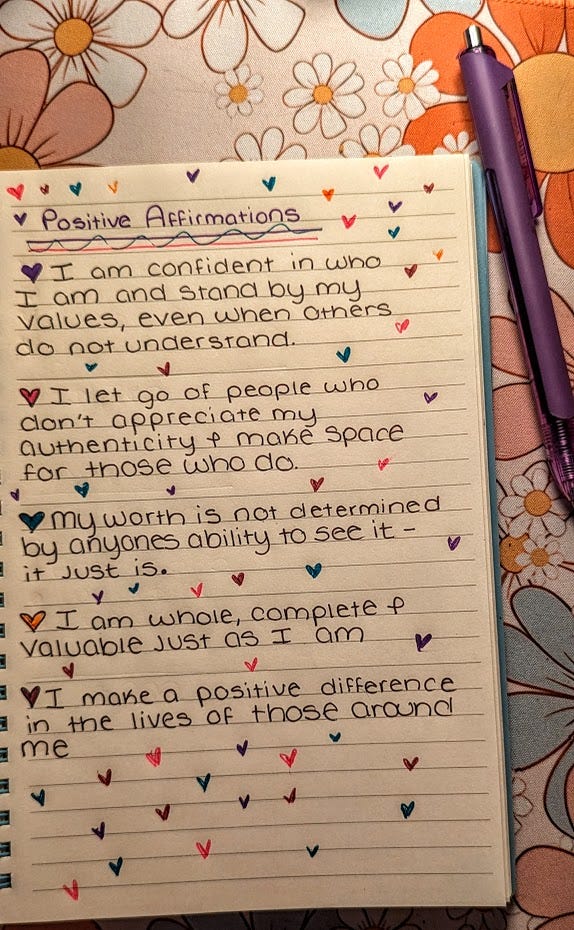 Positive Affirmations
I am confident in who
I am and stand by my
values, even when others
do not understand.
I let go of people who
don't appreciate my
authenticity & make space
for those who do.
My worth is not determined
by anyones ability to see it -
it just is.
I am whole, complete &
valuable just as I am
I make a positive difference
in the lives of those around
me